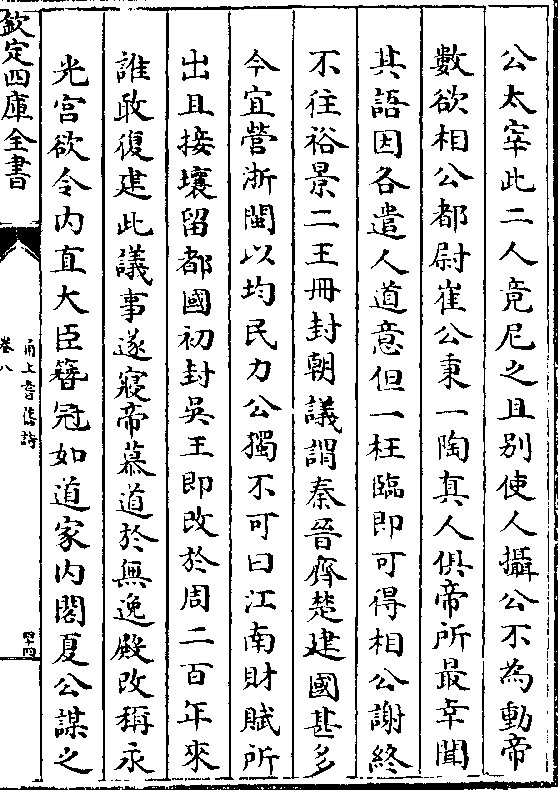 公太宰此二人竟尼之且别使人攝公不為動帝
數欲相公都尉崔公秉一陶真人俱帝所最幸聞
其語因各遣人道意但一枉臨即可得相公謝終
不往裕景二王冊封朝議謂秦晉齊楚建國甚多
今宜營浙閩以均民力公獨不可曰江南財賦所
出且接壤留都國初封吳王即改於周二百年來
誰敢復建此議事遂寢帝慕道於無逸殿改稱永
光宫欲令内直大臣簪冠如道家内閣夏公謀之
欽定四庫全書
甬上耆舊詩
卷八
四十四